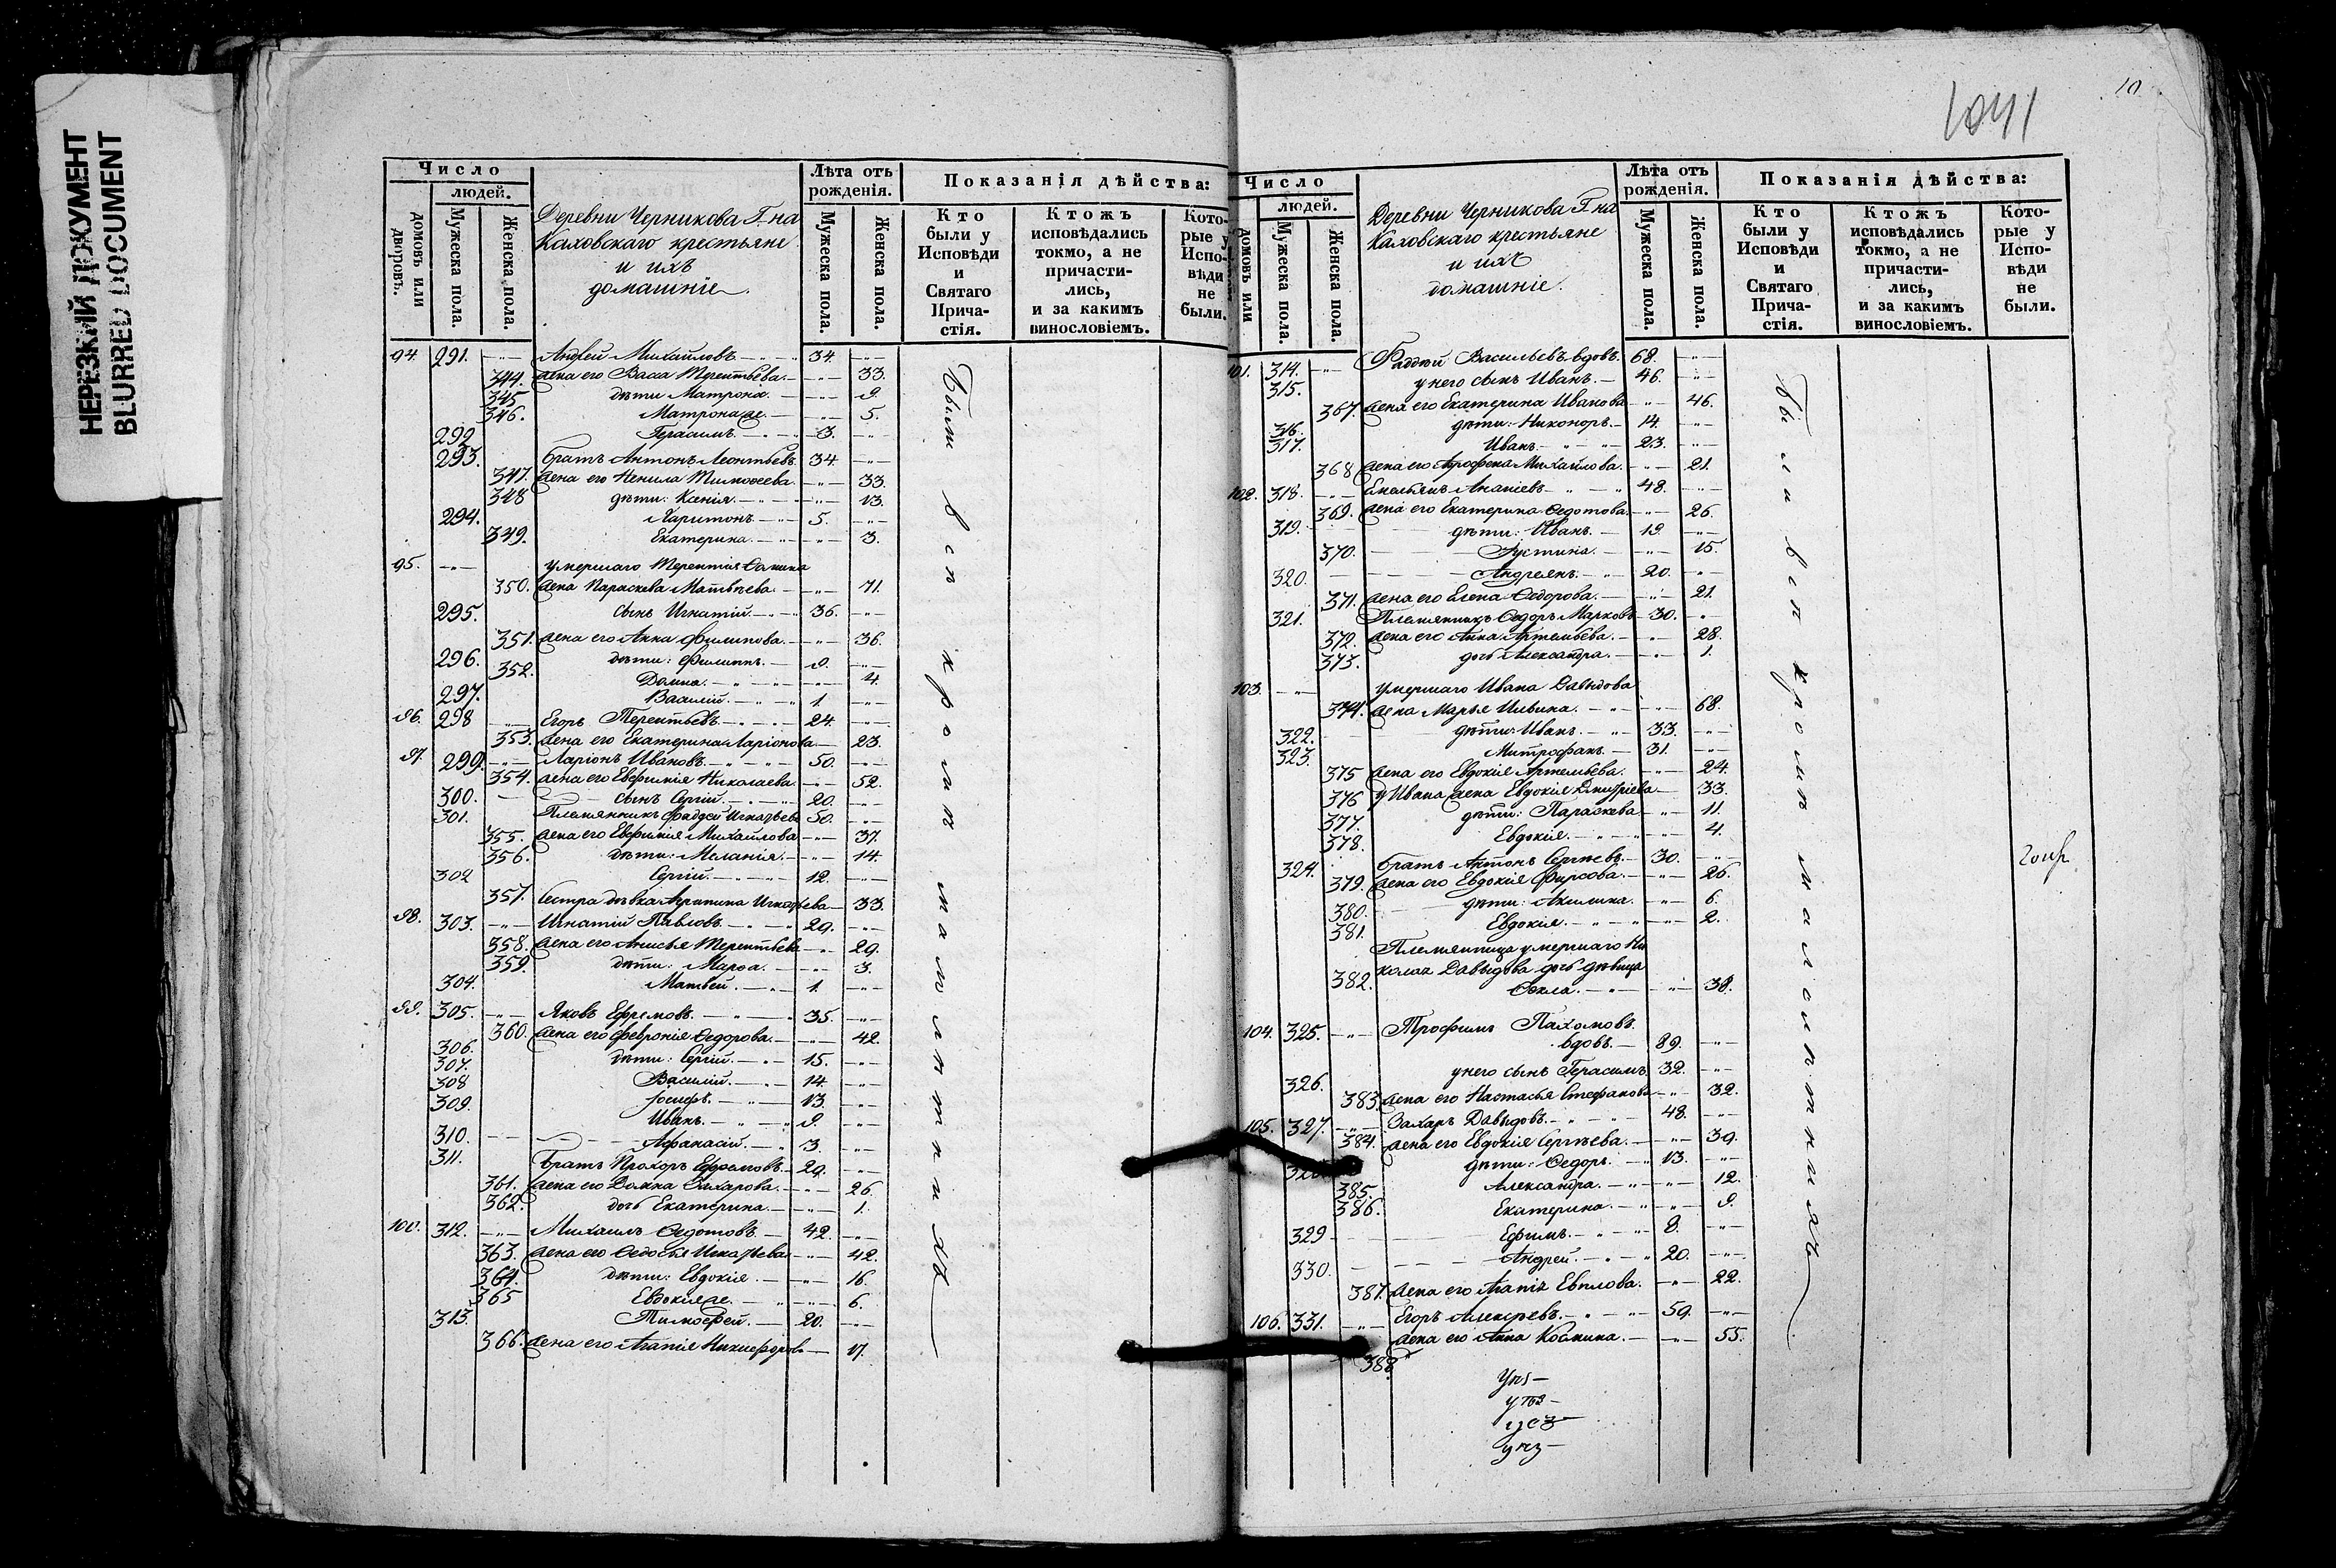 НЕРЕЗКИЙ ДОКУМЕНТ
BLURRED DOCUMENT
Число
людей.
домовъ или дворовъ.
Мужеска пола.
Женска пола.
Деревни Черникова Г-на
Каховскаго крестьяне
и ихъ
домашніе.
Лѣта отъ рожденія.
Мужеска пола.
Женска пола.
Показанія дѣйства:
Кто были у Исповѣди и Святаго Прича-стія.
Ктожъ исповѣдались токмо, а не причасти-лись, и за какимъ винословіемъ.
Кото-рые у Испо-вѣди не были.
94. 291. Андрей Михайловъ 34.
344. жена его Васса Терентьева. 33.
345 дѣти: Матрона. 9.
346. Матрона же. 5.
292 Герасимъ. 3.
293. братъ Антонъ Леонтьевъ. 34.
347. жена его Ненила Тимоѳеева. 33.
348 дѣти: Ксенія. 13.
294. Харитонъ 5.
349. Екатерина. 3.
95. умершаго Терентія
350. жена Параскева Матвѣева. 71.
295. сынъ Игнатій. 36.
351. жена его Анна Филипова. 36.
296. дѣти: Филиппъ. 9.
352. Домна. 4.
297. Василій. 1.
96. 298 Егоръ Терентьевъ 24.
353. жена его Екатерина Ларіонова 23.
97. 299. Ларіонъ Ивановъ 50.
354. жена его Евфимія Николаева. 52.
300. сынъ Сергій. 20.
301. Племянникъ Фаддей Игнатьевъ 50.
355. жена его Евфимія Михайлова 37.
356. дѣти: Меланія. 14.
302 Сергій. 12.
357. Сестра дѣвка Агрипина Игнатьева 33.
98. 303. Игнатій Павловъ 29.
358. жена его Анисья Терентьева 29.
359. дѣти: Марѳа. 3.
304. Матвей. 1.
99. 305. Яковъ Ефремовъ. 35.
360. жена его Февронія Ѳедорова. 42.
306. дѣти: Сергій. 15.
307.
308 Василій. 14.
309. Іосифъ. 13.
Иванъ. 9.
310. Афанасій. 3.
311. братъ Прохоръ Ефремовъ. 29.
361. жена его Домна Захарова. 26.
362. дочь Екатерина. 1.
100. 312. Михаилъ Ѳедотовъ 42.
363. жена его Ѳедосья Игнатьева 42.
364. дѣти: Евдокія. 16.
365 Евдокія же. 6.
313. Тимоѳей. 20.
366. жена его Агапія Никифорова 17.
Были
1041
10
Число
людей.
домовъ или
Мужеска пола.
Женска пола.
Деревни Черникова Г на
Каховскаго крестьяне
и ихъ
домашніе.
Лѣта отъ рожденія.
Мужеска пола.
Женска пола.
Показанія дѣйства:
Кто были у Исповѣди и Святаго Прича-стія.
Ктожъ исповѣдались токмо, а не причасти-лись, и за какимъ винословіемъ.
Кото-рые у Испо-вѣди не были.
101. 314. Фаддѣй Васильевъ вдовъ. 68.
315. у него сынъ Иванъ. 46.
367. жена его Екатерина Иванова 46.
316. дѣти: Никоноръ. 14.
317. Иванъ 23.
368 жена его Михайлова. 21.
102. 318. Емельянъ Ананіевъ 48.
369. жена его Екатерина Ѳедотова. 26.
319. дѣти: Иванъ. 19.
370. Іустина. 15.
320. Андреянъ. 20.
371. жена его Елена Ѳедорова. 21.
321. Племянникъ Ѳедоръ Марковъ 30.
372. жена его Анна Артемьева. 28.
373. дочь Александра. 1.
103. умершаго Ивана Давыдова
374. жена Марья Ильина. 68.
322. дѣти: Иванъ. 33.
323. Митрофанъ. 31.
375 жена его Евдокія Артемьева. 24.
376 у Ивана жена Евдокія Дмитріева 33.
377. дѣти: Параскева 11.
378. Евдокія. 4.
324. братъ Антонъ Сергѣевъ. 30.
379. жена его Евдокія Фирсова. 26.
380. дѣти: Акилина. 6.
381. Евдокія. 2.
Племянница умершаго Ни
382. колая Давыдова дочь дѣвица
Ѳекла. 38.
104. 325. Трофимъ Пахомовъ
вдовъ. 89.
326. у него сынъ Герасимъ 32.
383. жена его Настасья Стефанова 32.
105. 327. Захаръ Давыдовъ. 48.
384. жена его Евдокія Сергѣева. 39.
дѣти: Ѳедоръ. 13.
385. Александра. 12.
386. Екатерина. 9.
329 Ефимъ. 8.
330. Андрей. 20.
387. жена его Агапія Евплова. 22.
106. 331. Егоръ Алексѣевъ. 59.
388 жена его Анна Козмина. 55.
Были